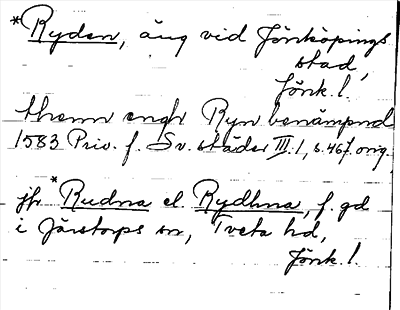 *Ryden, äng vid Jönköpings
stad,
Jönk. l.
thenn engh Ryn benämpnd
1583 Priv. f. Sv. städer III.1, s. 467. orig.
jfr *Rudna el. Rydhna, f. gd
i Järstorps sn, Tveta hd,
Jönk. l.